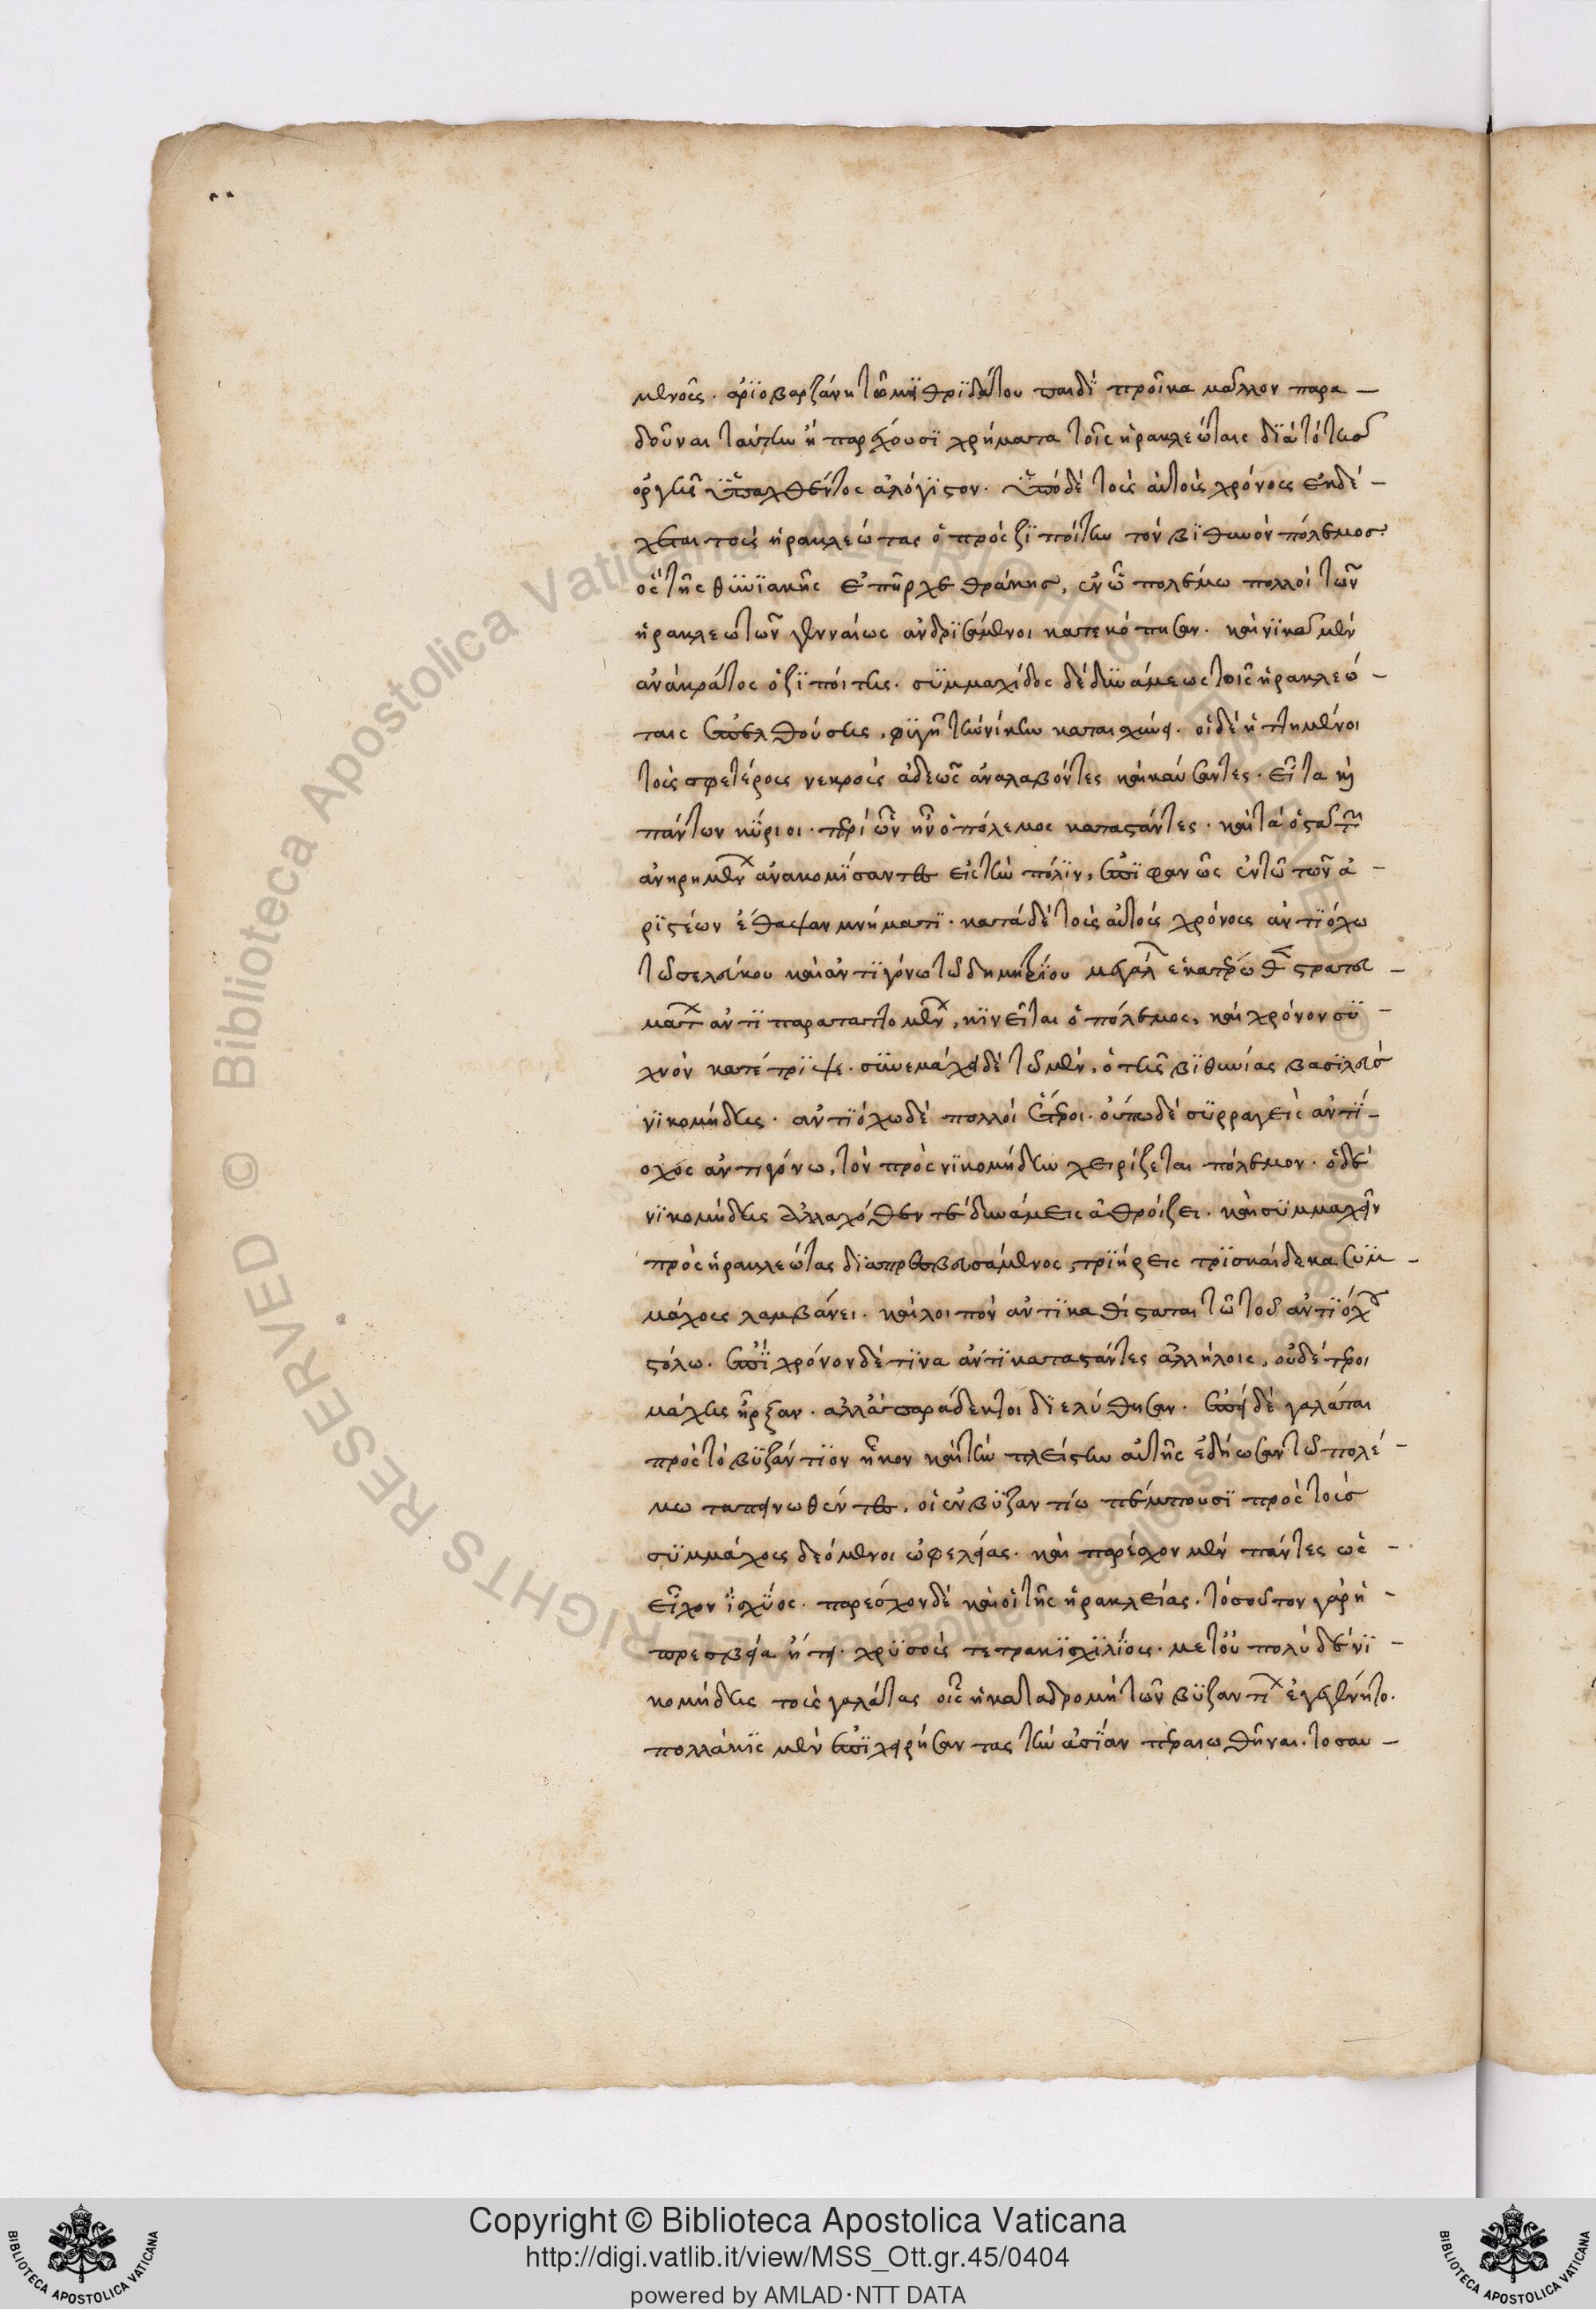 μένους. ἀρϊοβαρζάνη τῶ μϊθρϊδάτου παιδὶ προῖκα μᾶλλον παρα-
δοῦναι ταύτην ἢ παρέχουσϊ χρήματα τοῖς ἡρακλεώταις διὰ τὸ τῆς
ὀργῆς ὑπαχθέντος ἀλόγϊστον. ὑπὸ δὲ τοὺς αὐτοὺς χρόνους ἐκδέ-
χεται τοὺς ἡρακλεώτας ὁ πρὸς ζϊποίτην τὸν βϊθυνὸν πόλεμος.
ὃς τῆς θυνϊακῆς ἐπῆρχε θράκης, ἐν ᾧ πολέμω πολλοὶ τῶν
ἡρακλεωτῶν γενναίως ἀνδρϊσάμενοι κατεκόπησαν. καὶ νϊκᾶ μὲν
ἀνὰ κράτος ὁ ζϊποίτης. συμμαχίδος δὲ δυνάμεως τοῖς ἡρακλεώ-
ταις ἐπελθούσης, φυγῇ τὴν νίκην καταισχύνει. οἱ δὲ ἡττημένοι
τοὺς σφετέρους νεκροὺς ἀδεῶς ἀναλαβόντες καὶ καύσαντες. εἶτα κὴ
πάντων κύριοι. περὶ ὧν ἦν ὁ πόλεμος καταστάντες. καὶ τὰ ὀστᾶ τῶν
ἀνηρημένων ἀνακομϊσαντες εἰς τὴν πόλϊν, ἐπϊφανῶς ἐν τῶ τῶν ἀ-
ρϊστέων ἔθαψαν μνήματϊ. κατὰ δὲ τοὺς αὐτοὺς χρόνους ἀντϊόχω
τῶ σελεύκου καὶ ἀντϊγόνω τῶ δημητρίου μεγάλων ἑκατέρωθεν στρατευ-
μάτων ἀντϊπαραταττομένων, κϊνεῖται ὁ πόλεμος, καὶ χρόνον συ-
χνὸν κατέτρϊψε. συνεμάχει δὲ τῶ μὲν, ὁ τῆς βϊθυνίας βασϊλεὺς
νϊκομήδης. ἀντϊόχω δὲ πολλοὶ ἕτεροι. οὕπω δὲ συρραγεὶς ἀντϊ-
οχος ἀντιγόνω, τὸν πρὸς νϊκομήδην χειρίζεται πόλεμον. ὁ δὲ
νϊκομήδης ἀλλαχόθεν τε δυνάμεις ἀθροίζει. καὶ συμμαχεῖν
πρὸς ἡρακλεώτας δϊαπρεσβευσάμενος, τρϊήρεις τρϊσκαίδεκα συμ-
μάχους λαμβάνει. καὶ λοιπὸν ἀντϊκαθίσταται τῶ τοῦ ἀντϊόχου
στόλω. ἐπὶ χρόνον δέ τϊνα ἀντϊκαταστάντες ἀλλήλοις, οὐδέτεροι
μάχης ἦρξαν. ἀλλ' ἀπαράδεκτοι δϊελύθησαν. ἐπεὶ δὲ γαλάται
πρὸς τὸ βυζάντϊον ἧκον καὶ τὴν πλείστην αὐτῆς ἐδήωσαν τῶ πολέ-
μω ταπεινωθέντες, οἱ ἐν βυζαντίω πέμπουσϊ πρὸς τοὺς
συμμάχους δεόμενοι ὠφελείας. καὶ παρέσχον μὲν πάντες ὡς -
εἶχον ἰσχύος. παρέσχον δὲ καὶ οἱ τῆς ἡρακλείας. τοσοῦτον γὰρ ἡ -
πρεσβεία ᾔτει. χρϋσοὺς τετρακϊσχϊλϊους. μετ' οὐ πολὺ δὲ νϊ-
κομήδης τοὺς γαλάτας οἷς ἡ καταδρομὴ τῶν βυζαντίων ἐγεγένητο.
πολλάκϊς μὲν ἐπϊχειρήσαντας τὴν ἀσϊαν περαιωθῆναι. τοσαυ-
Copyright © Biblioteca Apostolica Vaticana
http://digi.vatlib.it/view/MSS_Ott.gr.45/0404
powered by AMLAD·NTT DATA